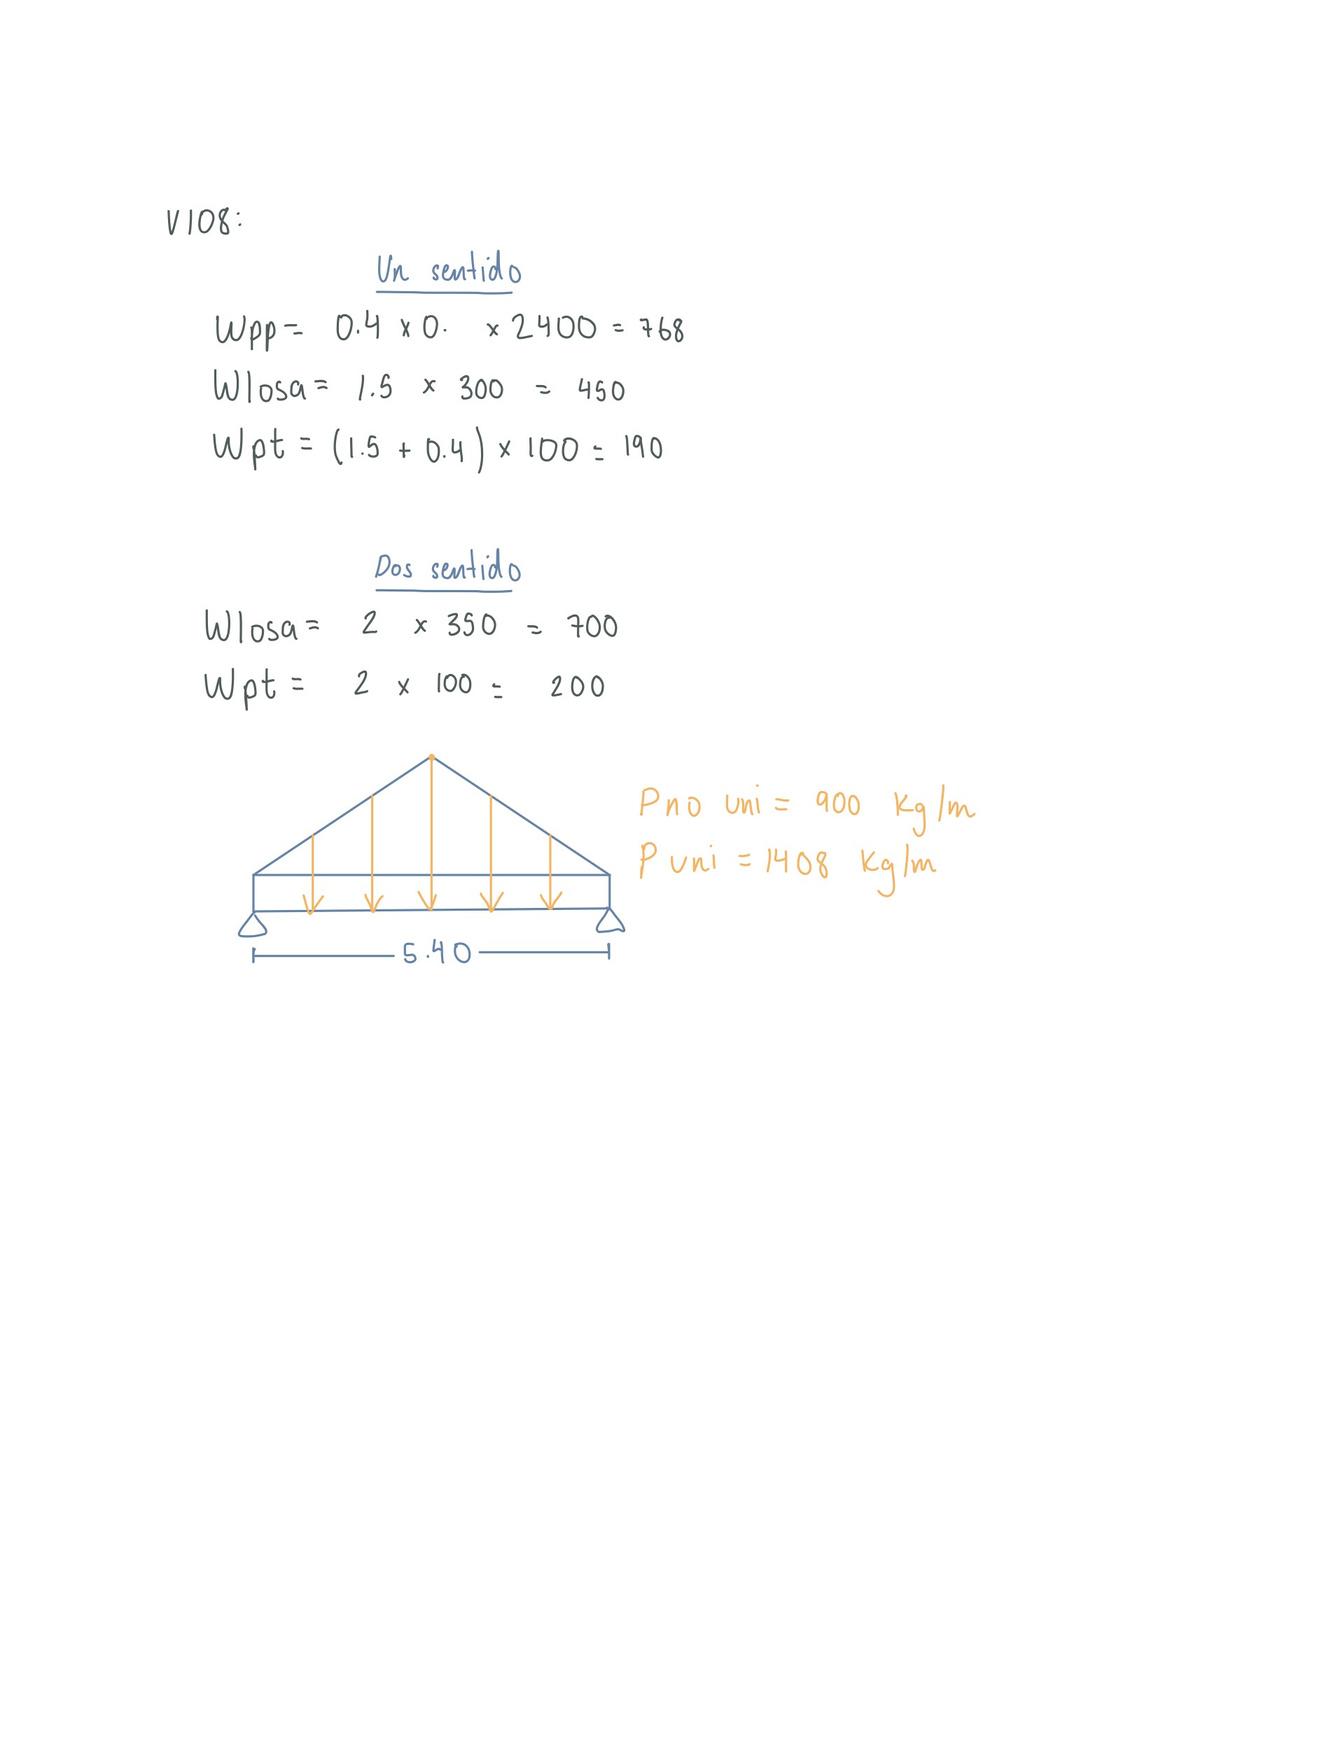 V108:
Un sentido
Wpp= 0.4 x 0. x 2400 = 768
Wlosa= 1.5 x 300 = 450
Wpt = (1.5 + 0.4) x 100 = 190
Dos sentido
Wlosa= 2 x 350 = 700
Wpt = 2 x 100 = 200
Pno uni = 900 Kg/m
P uni = 1408 Kg/m
5.40